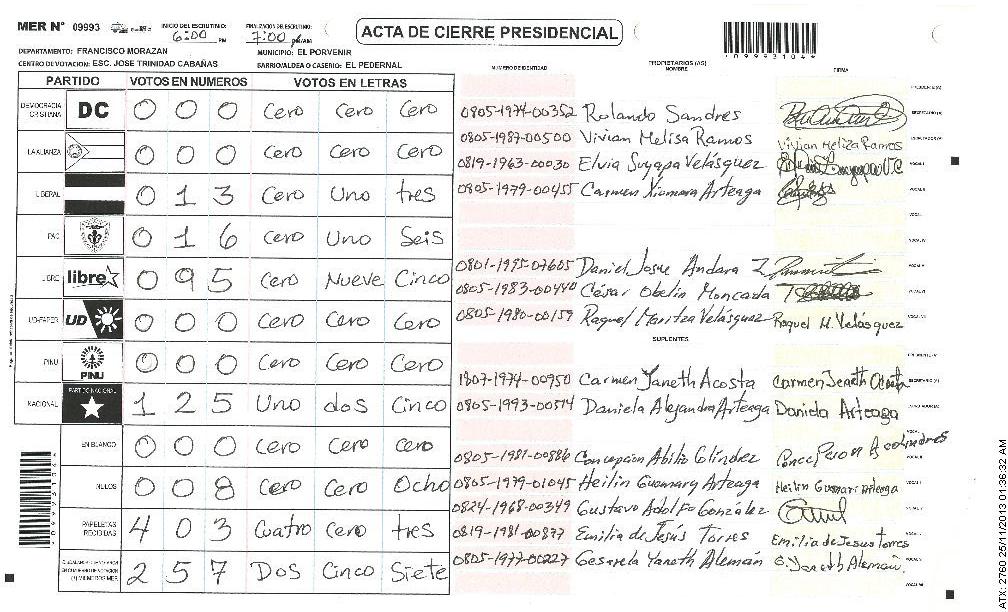 MER N° 09993 INICIO DEL ESCRUTINIO: 6:00 PM FINALIZACION DEL ESCRUTINIO: 7:00 PM
ACTA DE CIERRE PRESIDENCIAL
*099931046*
DEPARTAMENTO: FRANCISCO MORAZAN MUNICIPIO: EL PORVENIR
CENTRO DE VOTACION: ESC. JOSE TRINIDAD CABAÑAS BARRIO/ALDEA O CASERIO: EL PEDERNAL
PARTIDO VOTOS EN NUMEROS VOTOS EN LETRAS
DEMOCRACIA CRISTIANA DC 0 0 0 Cero Cero Cero
LA ALIANZA 0 0 0 Cero Cero Cero
LIBERAL 0 1 3 Cero Uno tres
PAC 0 1 6 Cero Uno Seis
LIBRE libre 0 9 5 Cero Nueve Cinco
UD-FAPER UD 0 0 0 Cero Cero Cero
PINU PINU 0 0 0 Cero Cero Cero
NACIONAL PARTIDO NACIONAL 1 2 5 Uno dos Cinco
EN BLANCO 0 0 0 Cero Cero cero
NULOS 0 0 8 Cero Cero Ocho
PAPELETAS RECIBIDAS 4 0 3 Cuatro cero tres
2 5 7 Dos Cinco Siete
NUMERO DE IDENTIDAD PROPIETARIOS (AS) NOMBRE FIRMA
0805-1974-00352 Rolando Sandres
0805-1987-00500 Vivian Melisa Ramos Vivian Meliza Ramos
0819-1963-00030 Elvia Suyapa Velásquez
0805-1979-00455 Carmen Xiomara Arteaga
0801-1995-07605 Daniel Josue Andara Z
0805-1983-00440 César Obelin Moncada
0805-1980-00159 Raquel Maritza Velásquez Raquel M. Velásquez
SUPLENTES
1807-1974-00950 Carmen Janeth Acosta Carmen Jeneth Acosta
0805-1993-00514 Daniela Alejandra Arteaga Daniela Arteaga
0805-1981-00886 Concepcion Abilio Colindrez
0805-1979-01045 Heilin Guemary Arteaga Heilin Guemari Arteaga
0824-1968-00349 Gustavo Adolfo González
0819-1981-00877 Emilia de Jesús Torres Emilia de Jesus torres
0805-1977-00227 Gesarela Yaneth Alemán G. Janeth Aleman.
ATX: 2760 25/11/2013 01:36:32 AM